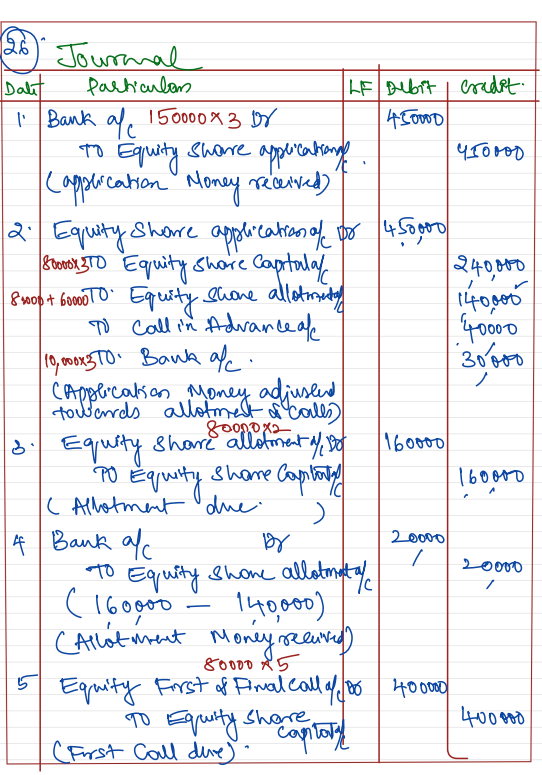 26.
Journal
Date Particulars LF Debit Credit.
1. Bank a/c 150000 x 3 Dr 450000
To Equity Share application a/c. 450000
(application Money received)
2. Equity Share application a/c Dr 450,000
80000x3 To Equity Share Capital a/c 240,000
80000 + 60000 To. Equity Share allotment a/c 140,000
To Call in Advance a/c 40000
10,000x3 To. Bank a/c. 30000
(Application Money adjusted
towards allotment & calls)
80000x2
3. Equity Share allotment a/c Dr 160000
To Equity Share Capital a/c 160000
(Allotment due. )
4 Bank a/c Dr 20000
To Equity Share allotment a/c 20000
(160000 — 140,000)
(Allotment Money received)
80000 x 5
5 Equity First & Final Call a/c Dr 400000
To Equity Share capital a/c 400000
(First Call due).